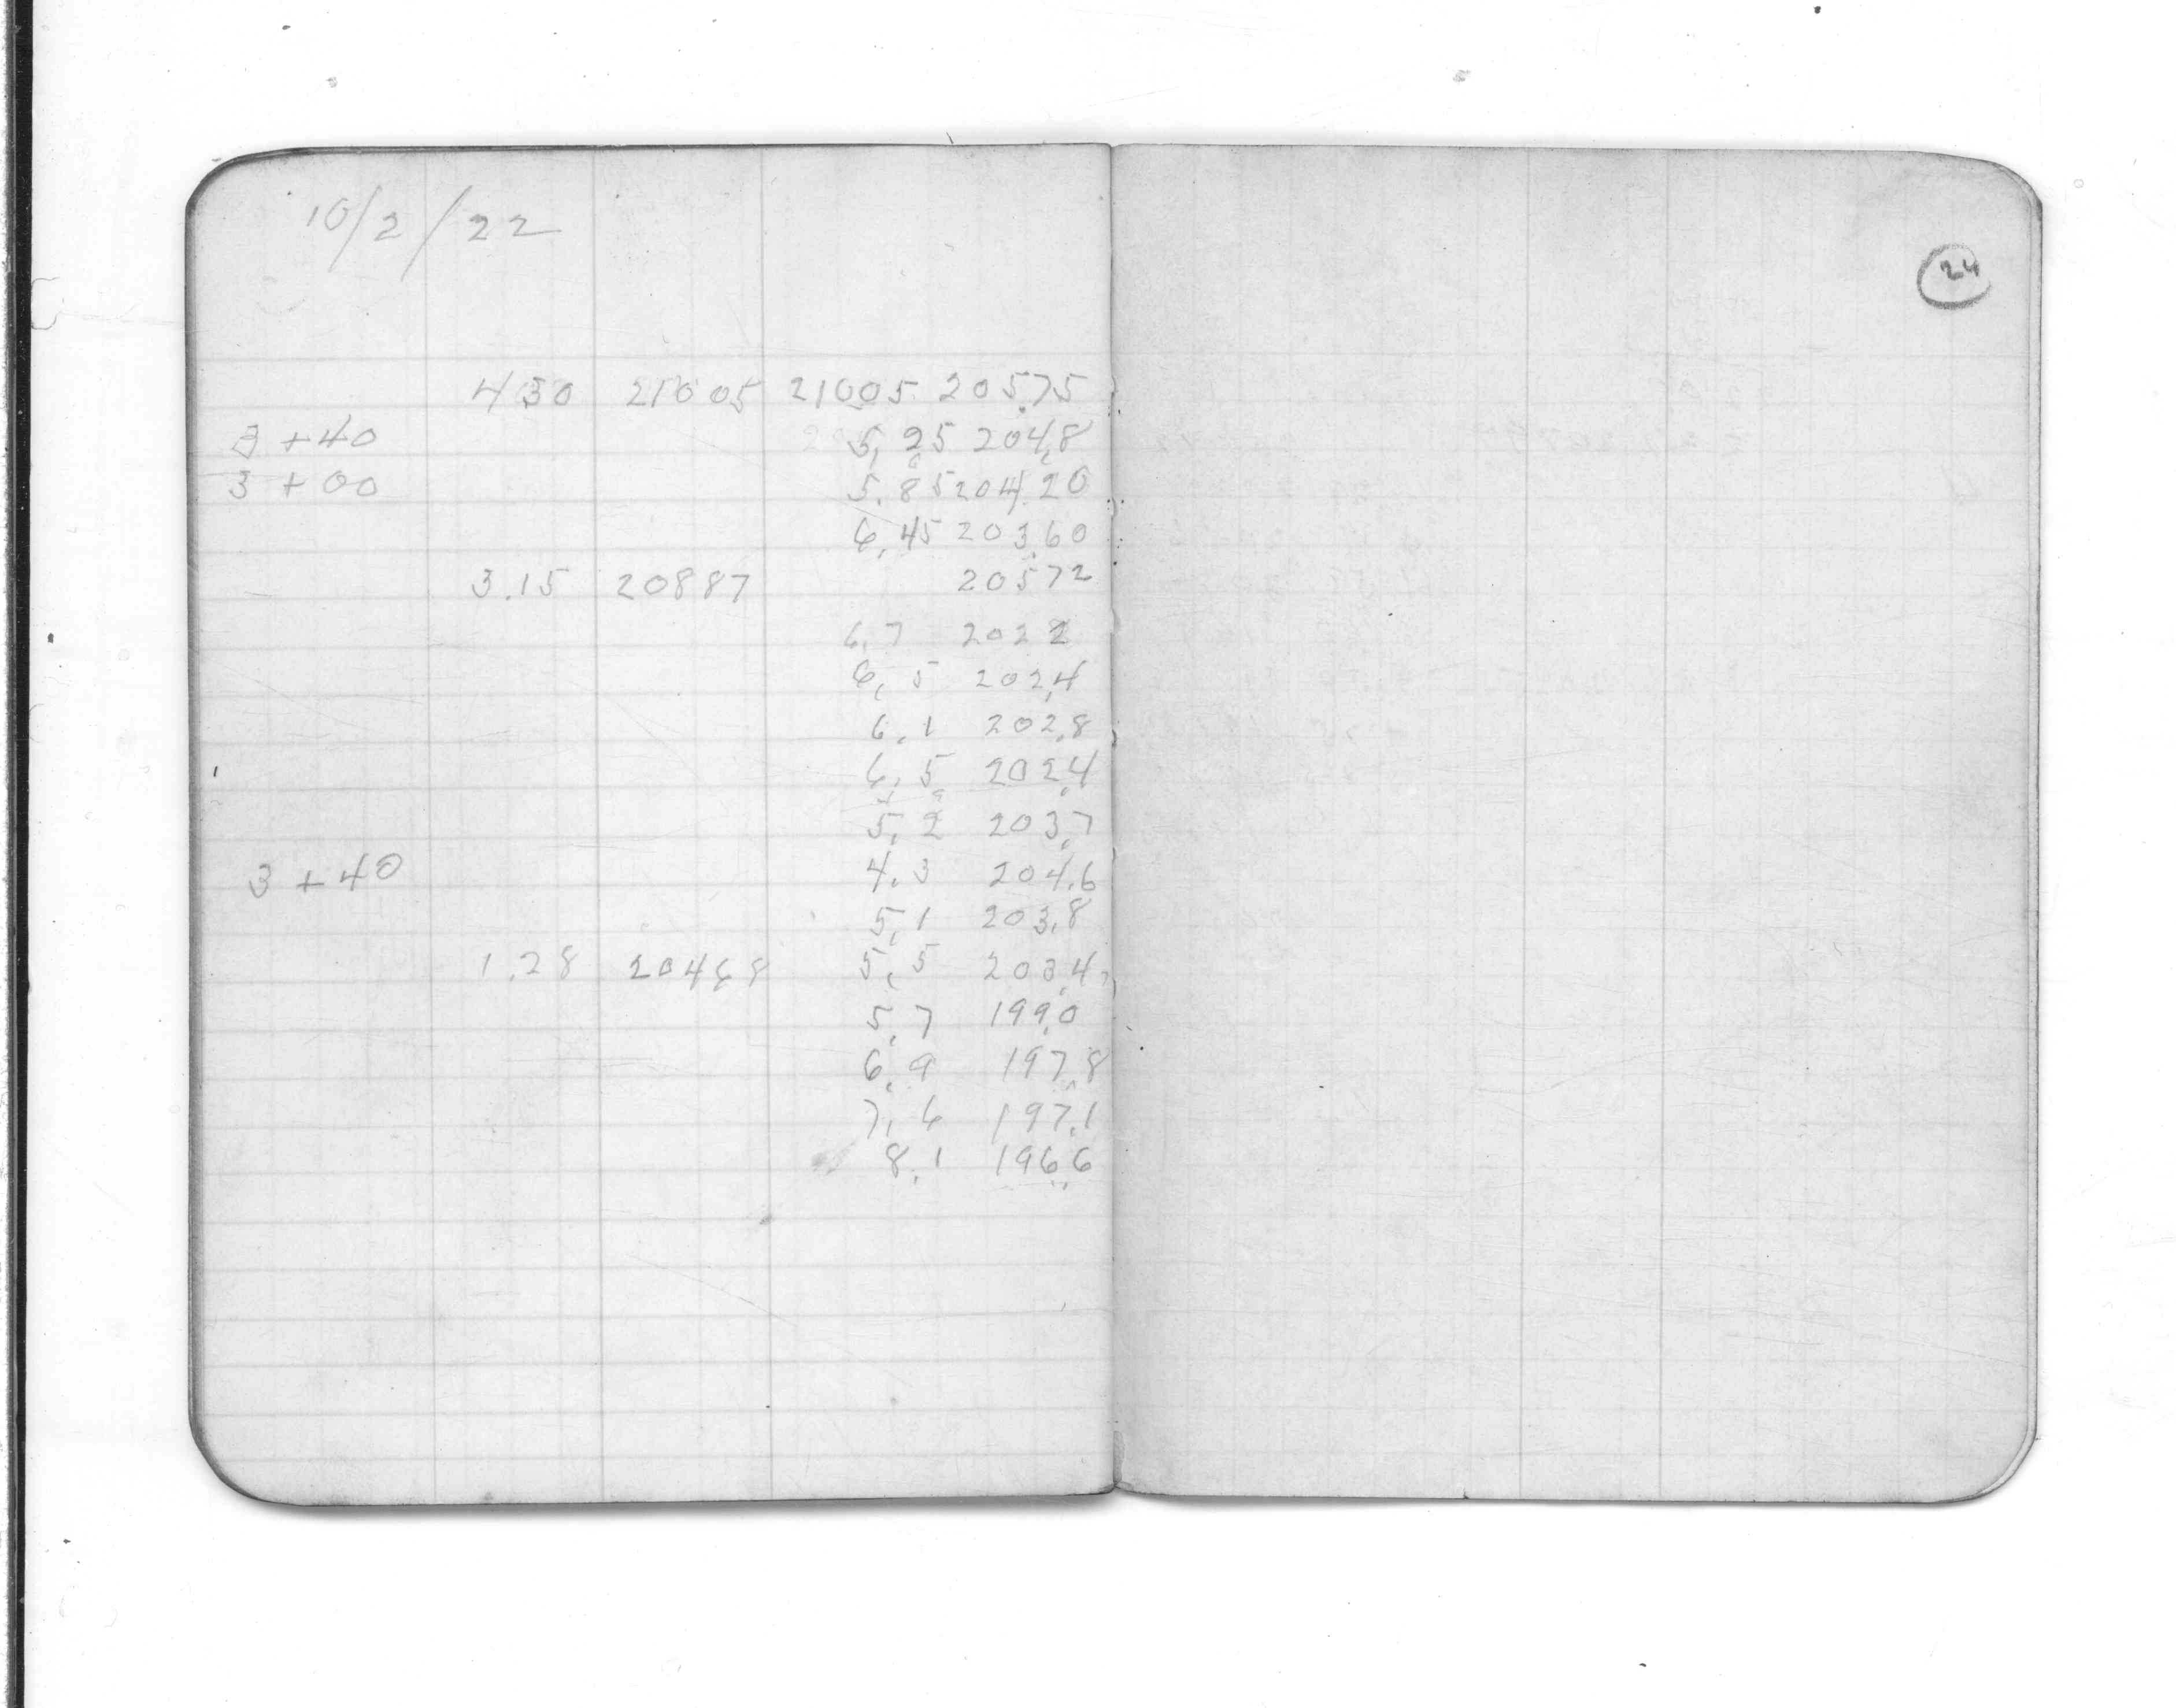 10/2/22
24
430 21005 21005 20575
3 + 40 5,25 204,8
3 + 00 5.85 204.20
6,45 203,60
3.15 20887 20572
6,7 2022
6,5 202,4
6.1 202,8
6,5 202,4
5,2 203,7
3 + 40 4.3 204.6
5,1 203,8
1.28 20468 5,5 203,4
5,7 199,0
6,9 197,8
7,6 197,1
8,1 196,6